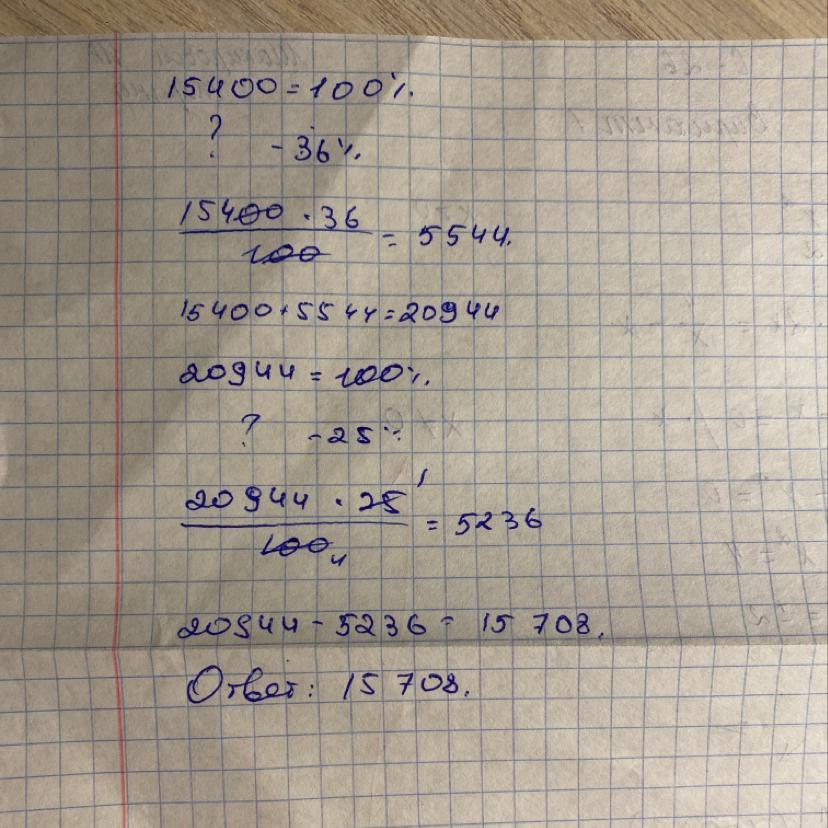 15400 = 100%.
? - 36%.
15400 · 36
100
= 5544.
15400 + 5544 = 20944
20944 = 100%.
? - 25%
20944 · 25 1
100 4
= 5236
20944 - 5236 = 15 708.
Ответ: 15 708.